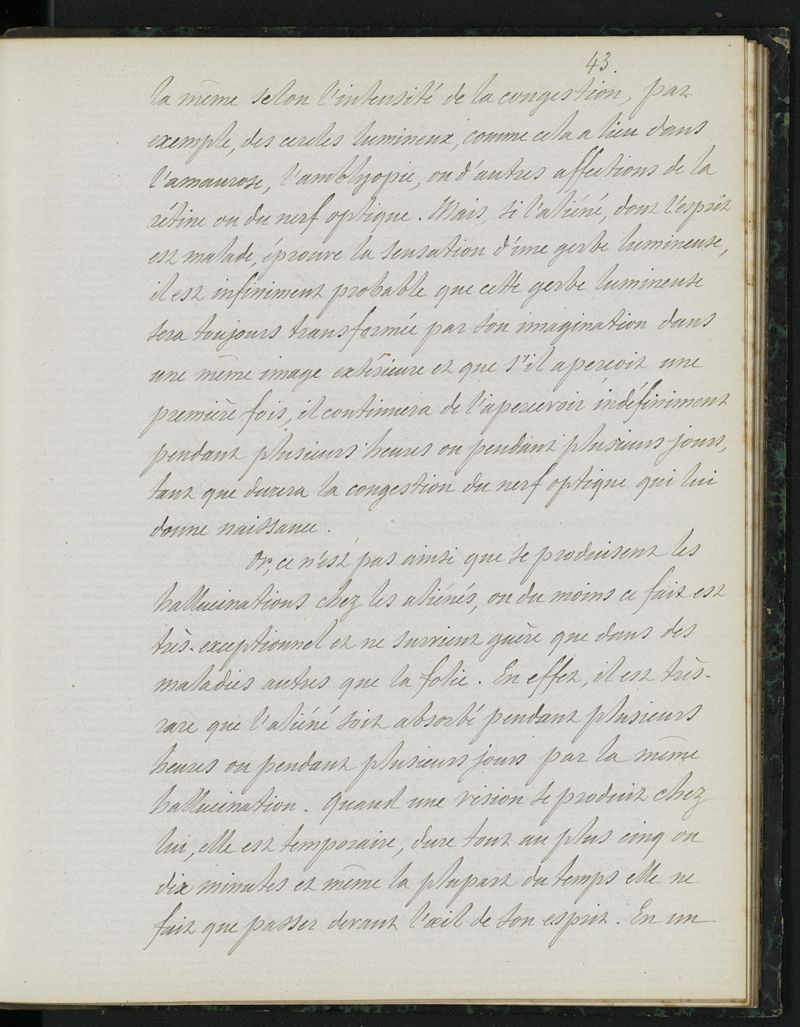 43
la même selon l'intensité de la congestion, par
exemple, des cercles lumineux, comme cela a lieu dans
l'amaurose, l'amblyopie, ou d'autres affections de la
rétine ou du nerf optique. Mais, si l'aliéné, dont l'esprit
est malade, éprouve la sensation d'une gerbe lumineuse,
il est infiniment probable que cette gerbe lumineuse
sera toujours transformée par son imagination dans
une même image extérieure et que s'il aperçoit une
première fois, il continuera de l'apercevoir indéfiniment
pendant plusieurs heures ou pendant plusieurs jours,
tant que durera la congestion du nerf optique qui lui
donne naissance.
Or, ce n'est pas ainsi que se produisent les
hallucinations chez les aliénés, ou du moins ce fait est
très-exceptionnel et ne survient guère que dans des
maladies autres que la folie. En effet, il est très-
rare que l'aliéné soit absorbé pendant plusieurs
heures ou pendant plusieurs jours par la même
hallucination. Quand une vision se produit chez
lui, elle est temporaire, dure tout au plus cinq ou
dix minutes et même la plupart du temps elle ne
fait que passer devant l'œil de son esprit. En un